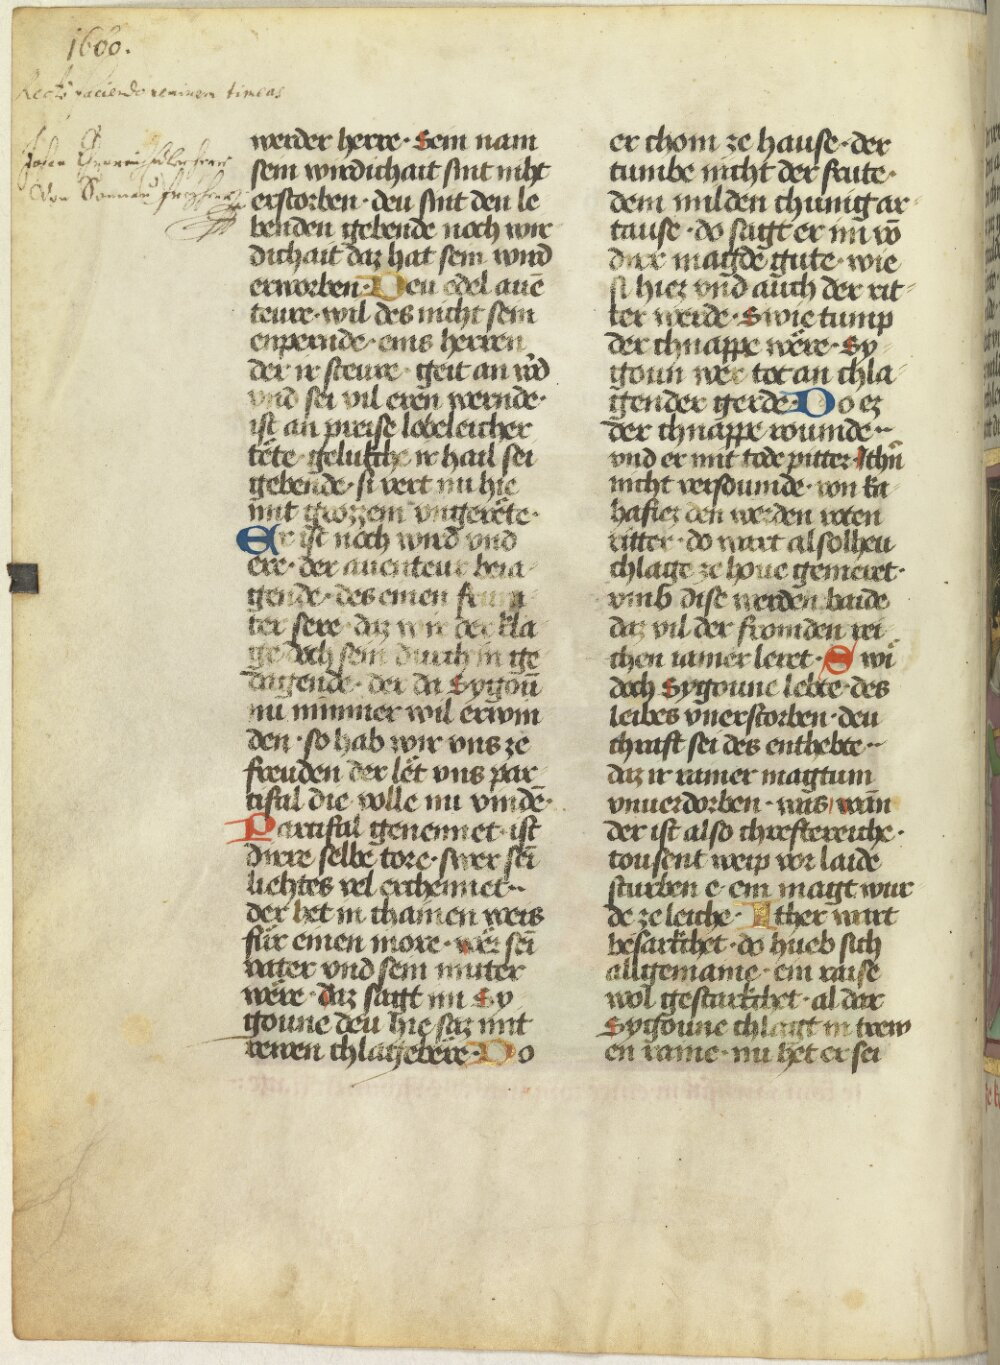 1600.
Recte faciendo neminem timeas
werder herre · Sein nam
sein wirdichait sint niht
erstorben · deu sint den le
benden gebende noch wir
dichait daz hat sein wird
erworben · Deu edel auē
teure · wil des nicht sein
enpernde · eins herren
der ir steure · geit an wͦd
vnd sei vil eren wernde ·
ist an preise lobeleicher
tëte · gelukche ir hail sei
gebende · si vert nu hie
mit grozzem vngerëte ·
Er ist noch wird vnd
ere · der auenteur beia
gende · des einen
ter sere · daz wir der kla
ge doch sein durch in ge
dagende · der da Sygoū
nu nimmer wil erwin
den · so hab wir vns ze
freuden der lët vns par
tifal die wolle nu vindē ·
Partifal genennet · ist
dirre selbe tore · swer sei
liehtes vel erchennet ··
der het in thainen weis
für einen more · wër sei
vater vnd sein muter
wëre · daz sagt im Sy
goune deu hie saz mit
rewen chlagebëre · Do
er chom ze hause · der
tumbe nicht der scute ·
dem milden chunig ar
tause · do sagt er im vō
dirr magde gute · wie
si hiez vnd auch der rit
ter werde · Swie tump
der chnappe wëre · Sy
goun wer tot an chla
gender gerde · Do ez
der chnappe wunde ··
vnd er mit tode pitter · Ithn̄
nicht versoumde · von ka
hafiez den werden roten
ritter · do wart alsolheu
chlage ze houe gemeret ·
vmb dise werden baide
daz vil der fromden rei
chen iamer leret · Swi
doch Sygoune lebte · des
leibes vnerstorben · deu
chraft sei des enthebte ··
daz ir iamer magtum
vnuerdorben · was wan
der ist also chrefftereiche ·
tousent weip vor laide
sturben e · ein magt wur
de ze leiche · Ither wart
besarkchet · do hueb sich
allgemaine · ein raise
wol gestarkchet · al dar
Sygoune chlagt in trew
en raine · nu het er sei